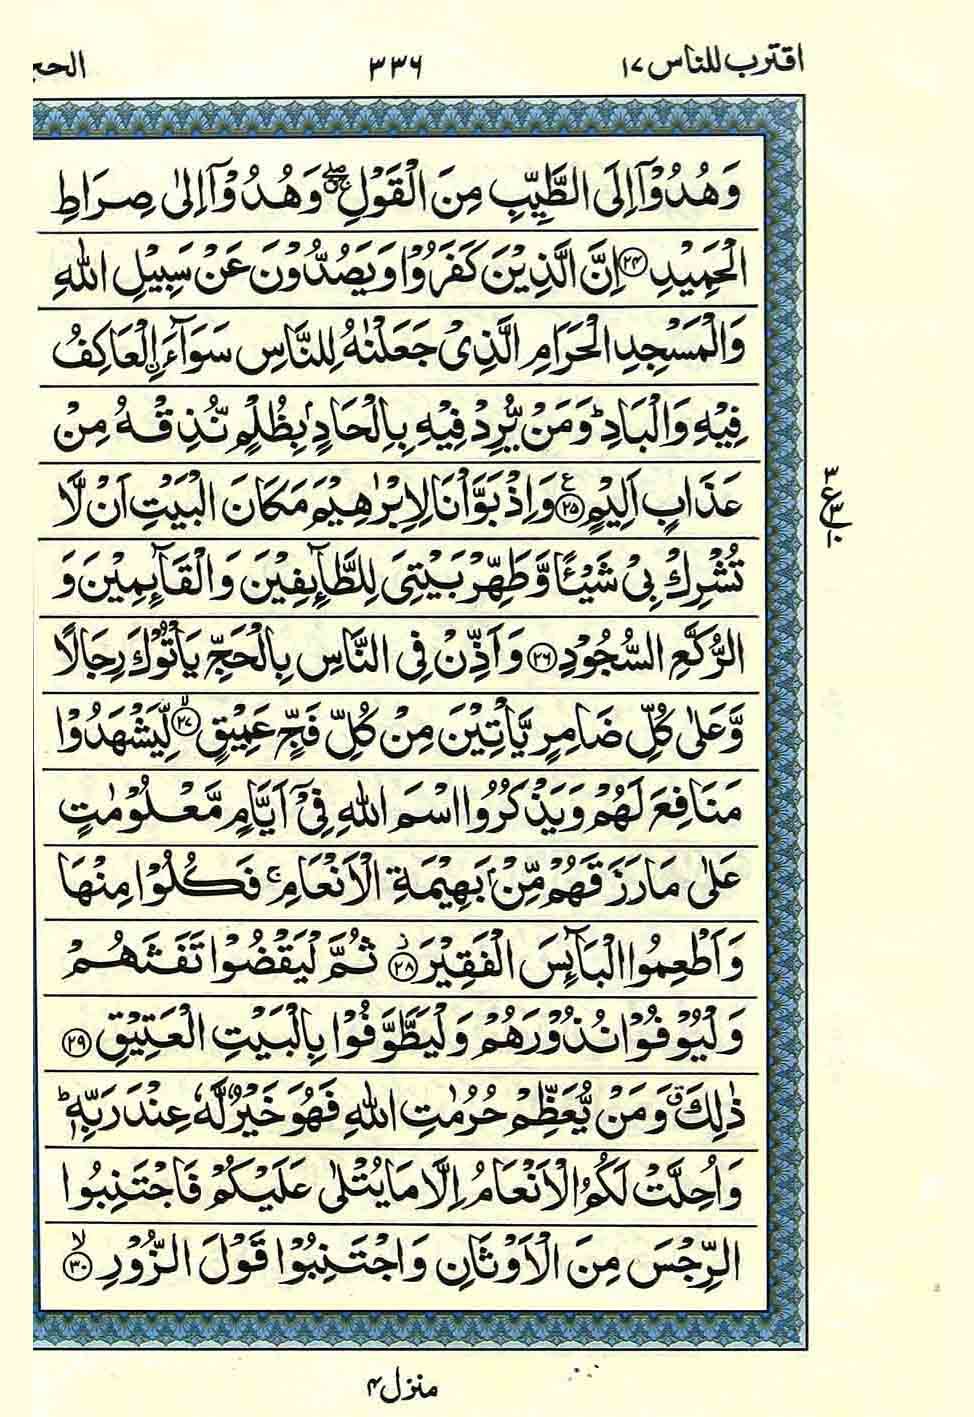 اقترب للناس ١٧
٣٣٦
الحج
وَهُدُوْٓا اِلَى الطَّيِّبِ مِنَ الْقَوْلِ ۖۚ وَهُدُوْٓا اِلٰى صِرَاطِ
الْحَمِيْدِ ﴿٢٤﴾ اِنَّ الَّذِيْنَ كَفَرُوْا وَيَصُدُّوْنَ عَنْ سَبِيْلِ اللّٰهِ
وَالْمَسْجِدِ الْحَرَامِ الَّذِىْ جَعَلْنٰهُ لِلنَّاسِ سَوَآءَۨ الْعَاكِفُ
فِيْهِ وَالْبَادِ ؕ وَمَنْ يُّرِدْ فِيْهِ بِاِلْحَادٍۢ بِظُلْمٍ نُّذِقْهُ مِنْ
عَذَابٍ اَلِيْمٍ ﴿٢٥﴾ وَاِذْ بَوَّاْنَا لِاِبْرٰهِيْمَ مَكَانَ الْبَيْتِ اَنْ لَّا
تُشْرِكْ بِىْ شَيْـًٔا وَّطَهِّرْ بَيْتِىَ لِلطَّآئِفِيْنَ وَالْقَآئِمِيْنَ وَ
الرُّكَّعِ السُّجُوْدِ ﴿٢٦﴾ وَاَذِّنْ فِى النَّاسِ بِالْحَجِّ يَاْتُوْكَ رِجَالًا
وَّعَلٰى كُلِّ ضَامِرٍ يَّاْتِيْنَ مِنْ كُلِّ فَجٍّ عَمِيْقٍ ﴿٢٧﴾ۙ لِّيَشْهَدُوْا
مَنَافِعَ لَهُمْ وَيَذْكُرُوا اسْمَ اللّٰهِ فِىْٓ اَيَّامٍ مَّعْلُوْمٰتٍ
عَلٰى مَا رَزَقَهُمْ مِّنْۢ بَهِيْمَةِ الْاَنْعَامِ ۚ فَكُلُوْا مِنْهَا
وَاَطْعِمُوا الْبَآئِسَ الْفَقِيْرَ ﴿٢٨﴾ ثُمَّ لْيَقْضُوْا تَفَثَهُمْ
وَلْيُوْفُوْا نُذُوْرَهُمْ وَلْيَطَّوَّفُوْا بِالْبَيْتِ الْعَتِيْقِ ﴿٢٩﴾
ذٰلِكَ ۗ وَمَنْ يُّعَظِّمْ حُرُمٰتِ اللّٰهِ فَهُوَ خَيْرٌ لَّهٗ عِنْدَ رَبِّهٖ ؕ
وَاُحِلَّتْ لَكُمُ الْاَنْعَامُ اِلَّا مَا يُتْلٰى عَلَيْكُمْ فَاجْتَنِبُوا
الرِّجْسَ مِنَ الْاَوْثَانِ وَاجْتَنِبُوْا قَوْلَ الزُّوْرِ ﴿٣٠﴾ۙ
٣
ع ٣
١٠
منزل ٤